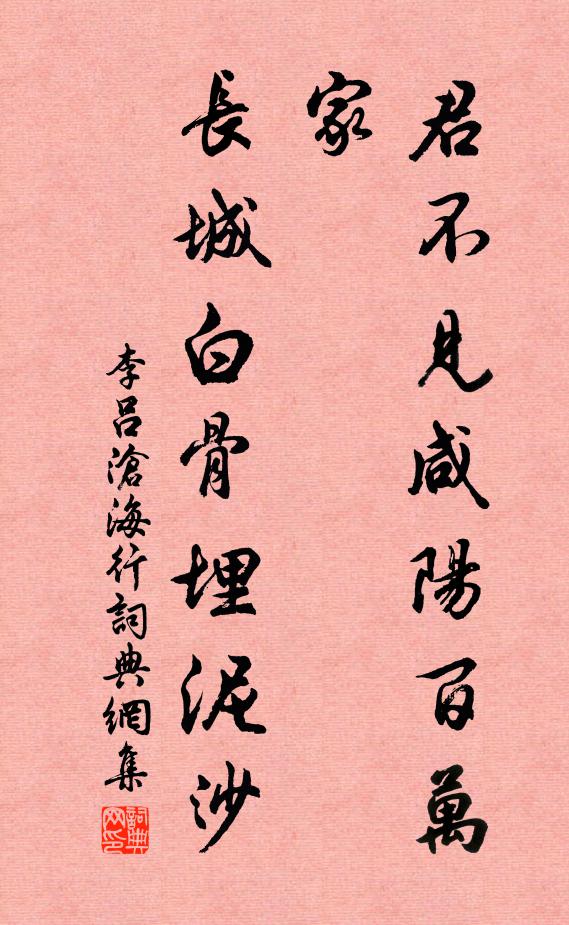 君不見咸陽百萬
家
長城白骨埋泥沙
李呂滄海行詞典網集
詞典网印